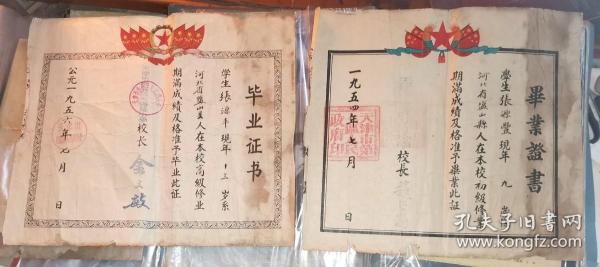 毕业证书
学生张源丰现年十三岁系
河北省盐山县人在本校高级修业
期满成绩及格准予毕业此证
校长
公元一九五六年七月 日
畢業證書
學生張源豐現年九歲
河北省盐山縣人在本校初級修業
期滿成绩及格准予畢業此证
校長
一九五四年七月 日
孔夫子旧书网
www.kongfz.com